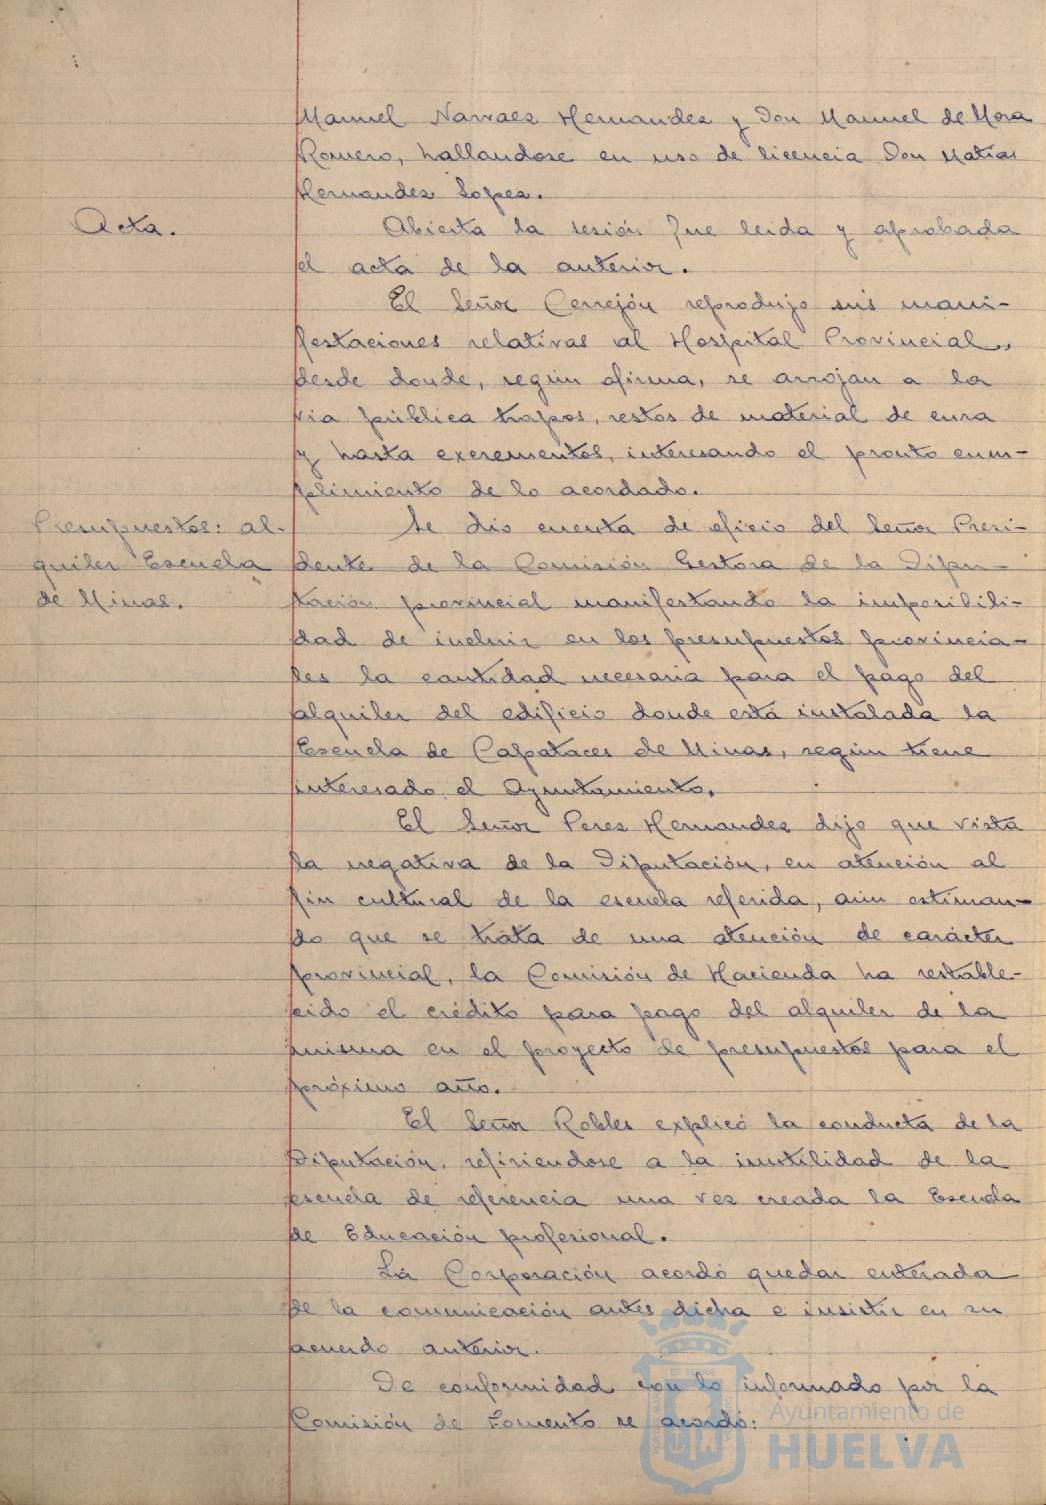 Manuel Narvaez Hernandez y Don Manuel de Mora
Romero, hallandose en uso de licencia Don Matías
Hernandez Lopez.
Acta.
Abierta la sesión fue leida y aprobada
el acta de la anterior.
El Señor Cerrejón reprodujo sus mani-
festaciones relativas al Hospital Provincial,
desde donde, según afirma, se arrojan a la
via pública trapos, restos de material de cura
y hasta excrementos, interesando el pronto cum-
plimiento de lo acordado.
Presupuestos: al-
quiler Escuela
de Minas.
Se dio cuenta de oficio del Señor Presi-
dente de la Comisión Gestora de la Dipu-
tación provincial manifestando la imposibili-
dad de incluir en los presupuestos provincia-
les la cantidad necesaria para el pago del
alquiler del edificio donde está instalada la
Escuela de Capataces de Minas, según tiene
interesado el Ayuntamiento.
El Señor Perez Hernandez dijo que vista
la negativa de la Diputación, en atención al
fin cultural de la escuela referida, aún estiman-
do que se trata de una atención de carácter
provincial, la Comisión de Hacienda ha restable-
cido el crédito para pago del alquiler de la
misma en el proyecto de presupuestos para el
próximo año.
El Señor Robles explicó la conducta de la
Diputación, refiriendose a la inutilidad de la
escuela de referencia una vez creada la Escuela
de Educación profesional.
La Corporación acordó quedar enterada
de la comunicación antes dicha e insistir en su
acuerdo anterior.
De conformidad con lo informado por la
Comisión de Fomento se acordó:
Ayuntamiento de
HUELVA